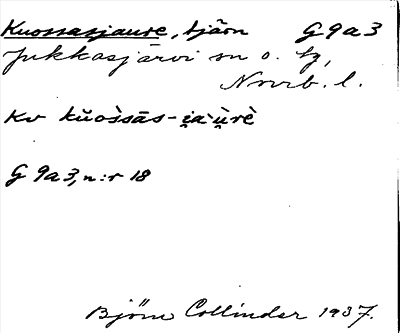 Kuossasjaure, tjärn G 9 a 3
Jukkasjärvi sn o. tg,
Norrb. l.
Kv kŭos̀sās-i̯a·ù̯rè
G 9a3, n:r 18
Björn Collinder 1937.